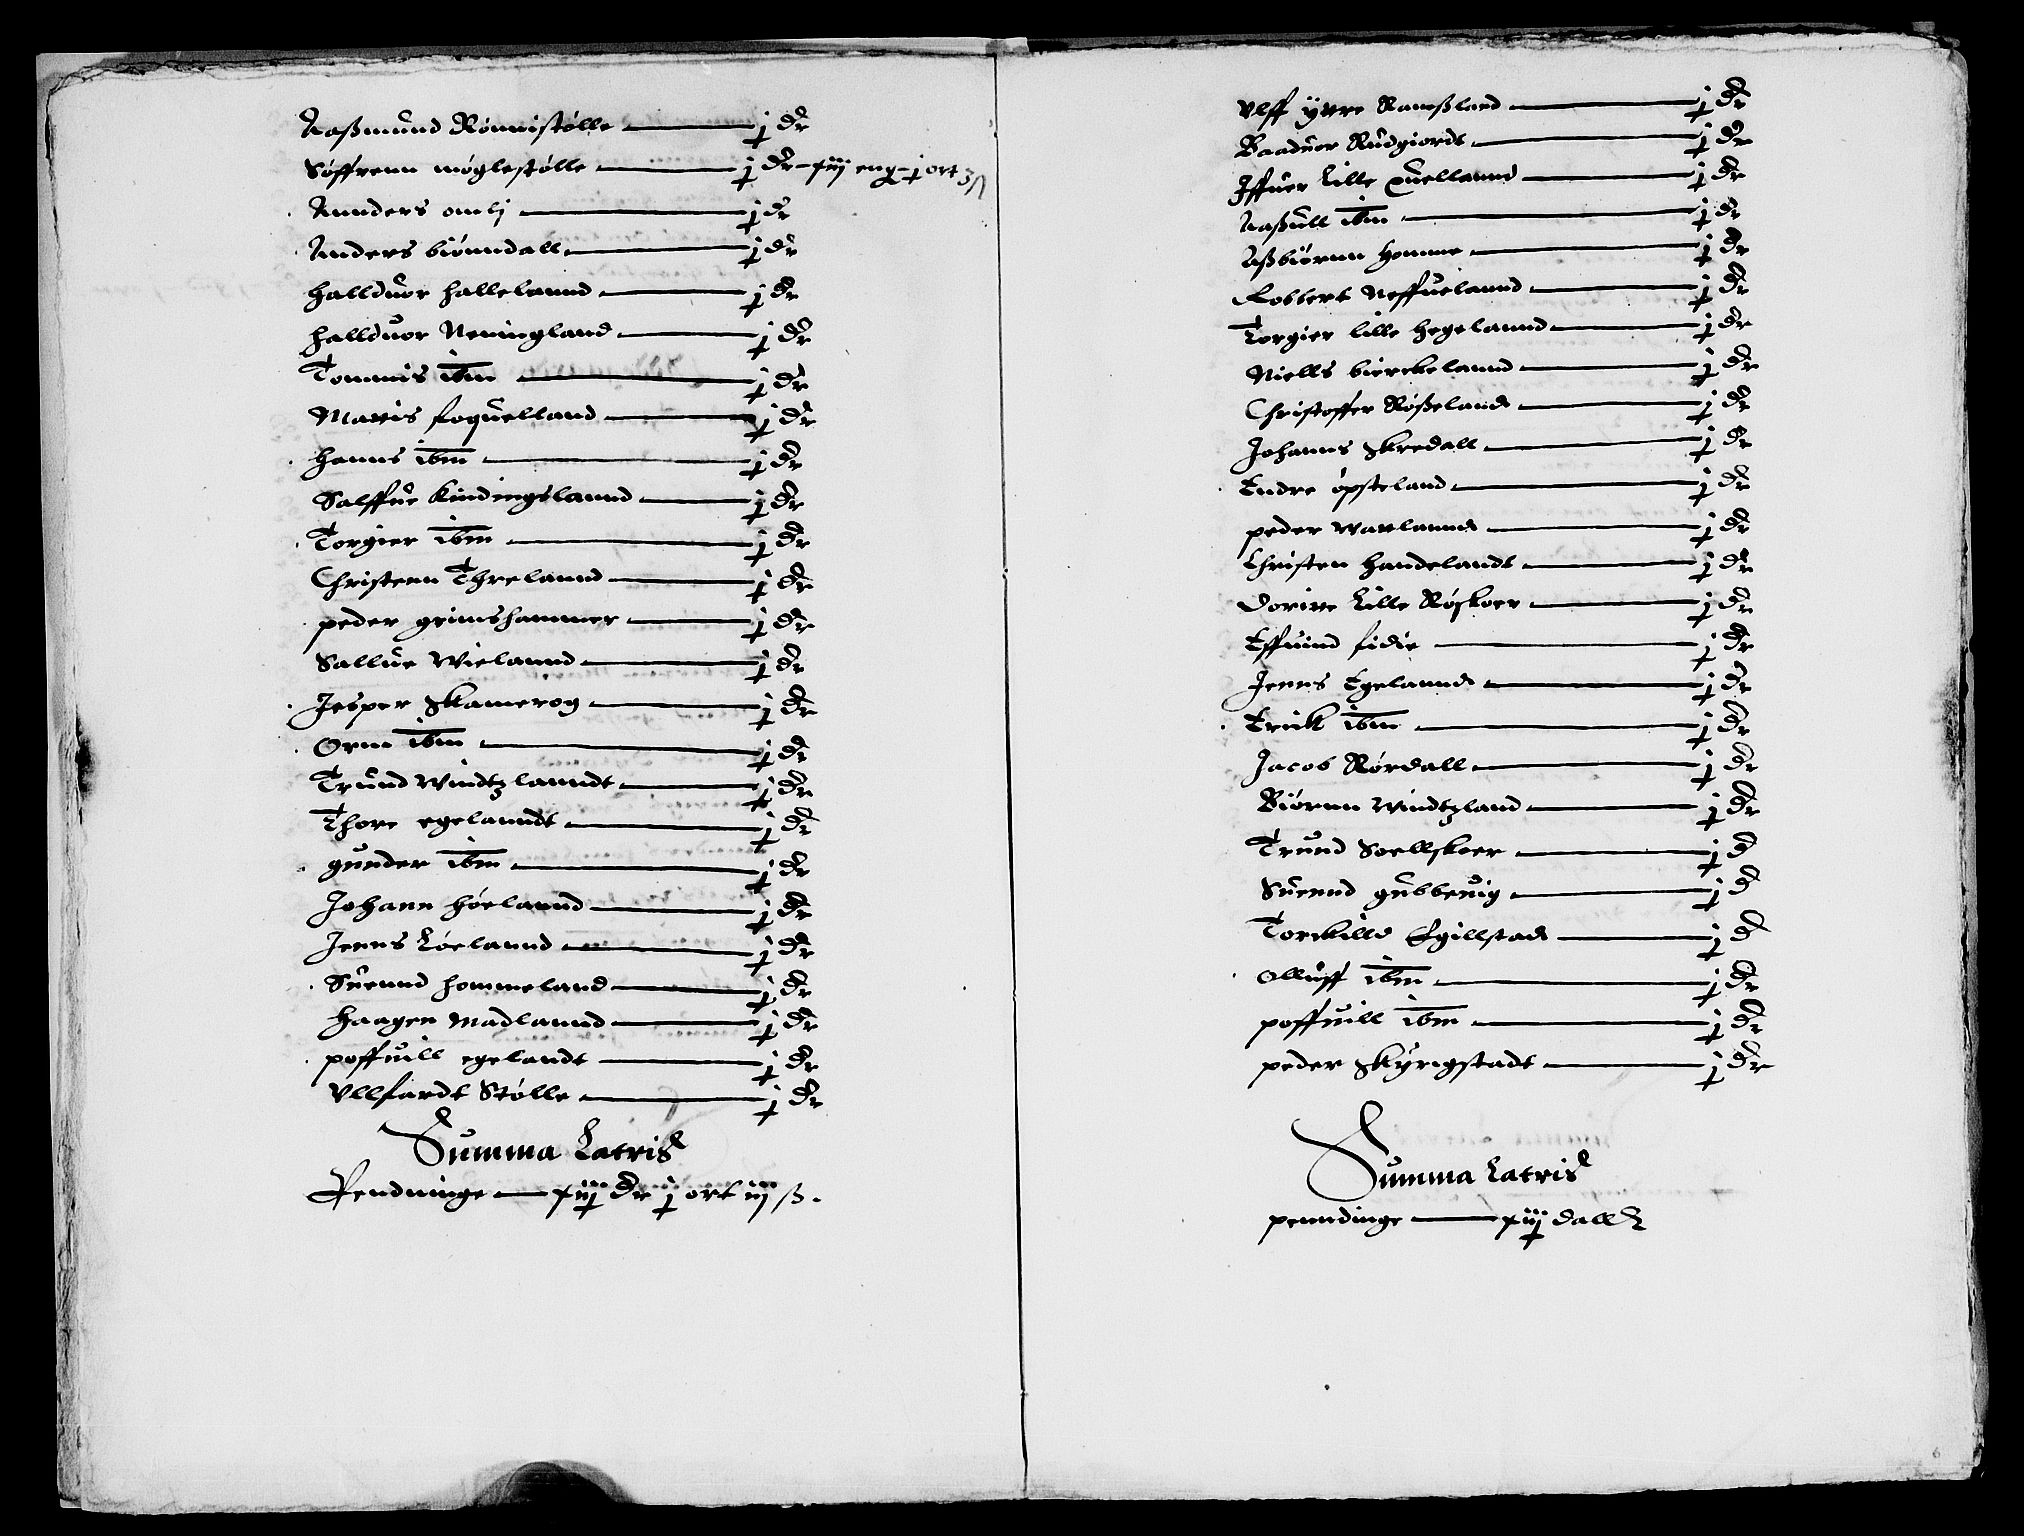 Aaßmund Rønnistølle — j dr
Søffrenn møglestølle — j dr – xiij eng – j ort 3 ß
Aunders omlj — j dr
Anders biønndall — j dr
Hallduor hallelannd — j dr
Hallduor Neningland — j dr
Tommis ibm — j dr
Mattis foquelland — j dr
Hanns ibm — j dr
Salffue Kindingslannd — j dr
Torgier ibm — j dr
Christenn Threlannd — j dr
peder grimshammer — j dr
Sallue Wielannd — j dr
Jesper Skamerog — j dr
Orm ibm — j dr
Trund Windtzlanndt — j dr
Thore egelanndt — j dr
gunder ibm — j dr
Johann høelannd — j dr
Jenns Løelannd — j dr
Suennd hommeland — j dr
Haagen Madlannd — j dr
poffuill egelandt — j dr
Ullfardt Stølle — j dr
Summa Latris
Pendninge — xiij dr j ort iij ß.
Ulff ytre Ramßland — j dr
Baaduer Rudgiordt — j dr
Iffuer Lille quellannd — j dr
Aaßull ibm — j dr
Aßbiørnn Homme — j dr
Robbert Neffuelannd — j dr
Torgier lille Hegelannd — j dr
Niells bierckelannd — j dr
Christoffer Røßelandt — j dr
Johanns Skredall — j dr
Endre øpsteland — j dr
peder Watlanndt — j dr
Christen Handelandt — j dr
Dorive Lille Røskoer — j dr
Effuind fidie — j dr
Jenns Egelanndt — j dr
Erick ibm — j dr
Jacob Rørdall — j dr
Biørnn Windtzland — j dr
Trund Soellskoer — j d
Suennd gubbeuig — j d
Torckilld Egillstadt — j d
Olluff ibm — j dr
poffuill ibm — j dr
peder Skyrigstadt — j dr
Summa Latris
penndinge — xiij dall